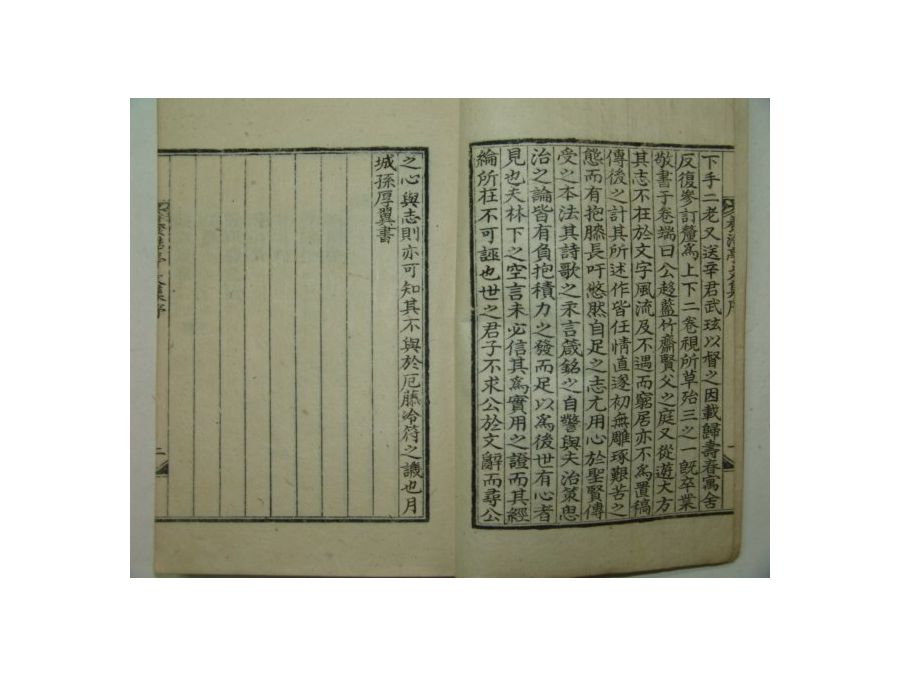 下手二老又送辛君武玹以督之因載歸壽春寓舍
反復參訂釐爲上下二卷視所草殆三之一旣卒業
敬書于卷端曰公趍藍竹齋賢父之庭又從遊大方
其志不在於文字風流及不遇而窮居亦不爲置稿
傳後之計其所述作皆任情直遂初無雕琢艱苦之
態而有抱膝長吁愍然自足之志尤用心於聖賢傳
受之本法其詩歌之永言箴銘之自警與夫治策思
治之論皆有負抱積力之發而足以爲後世有心者
見也夫林下之空言未必信其爲實用之證而其經
綸所在不可誣也世之君子不求公於文辭而尋公
之心與志則亦可知其不與於厄藤冷符之譏也月
城孫厚翼書